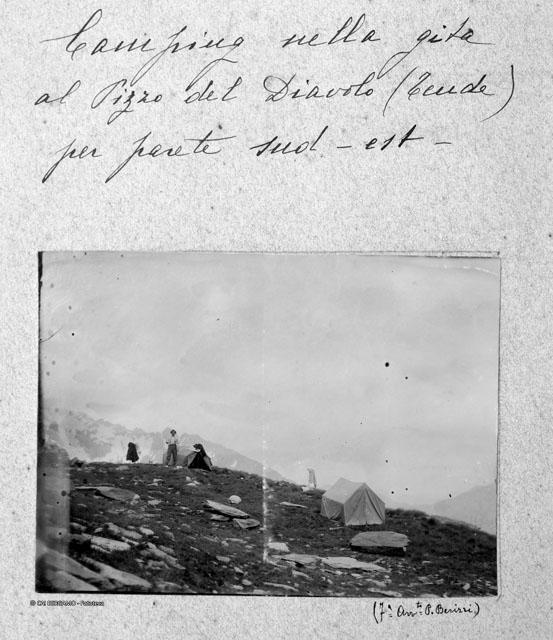 Camping nella gita
al Pizzo del Diavolo (Tende)
per parete sud - est -
© CAI BERGAMO - Fototeca
P. Berizzi)